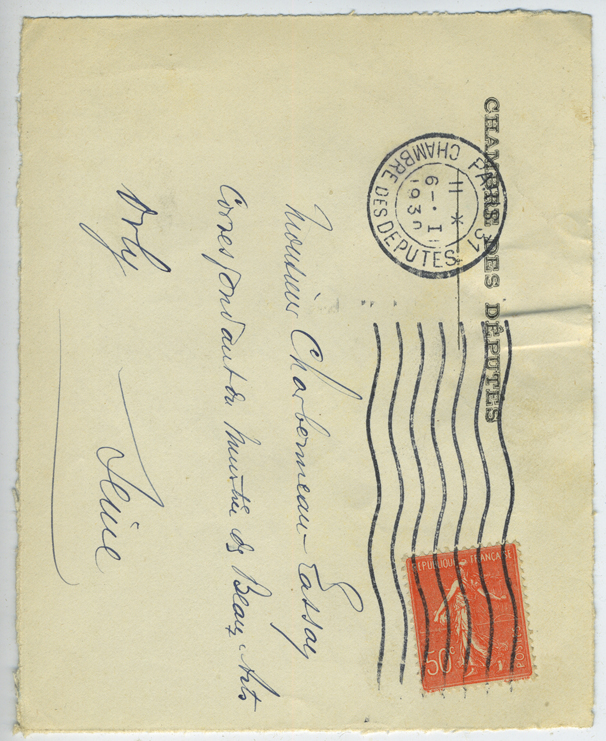 CHAMBRE DES DÉPUTÉS
PARIS 31
CHAMBRE DES DEPUTES
11 *
6-1
193
RÉPUBLIQUE FRANÇAISE
POSTES
50c
Monsieur Charbonneau-Lassay
Correspondant du Ministère des Beaux-Arts
Orly
Seine